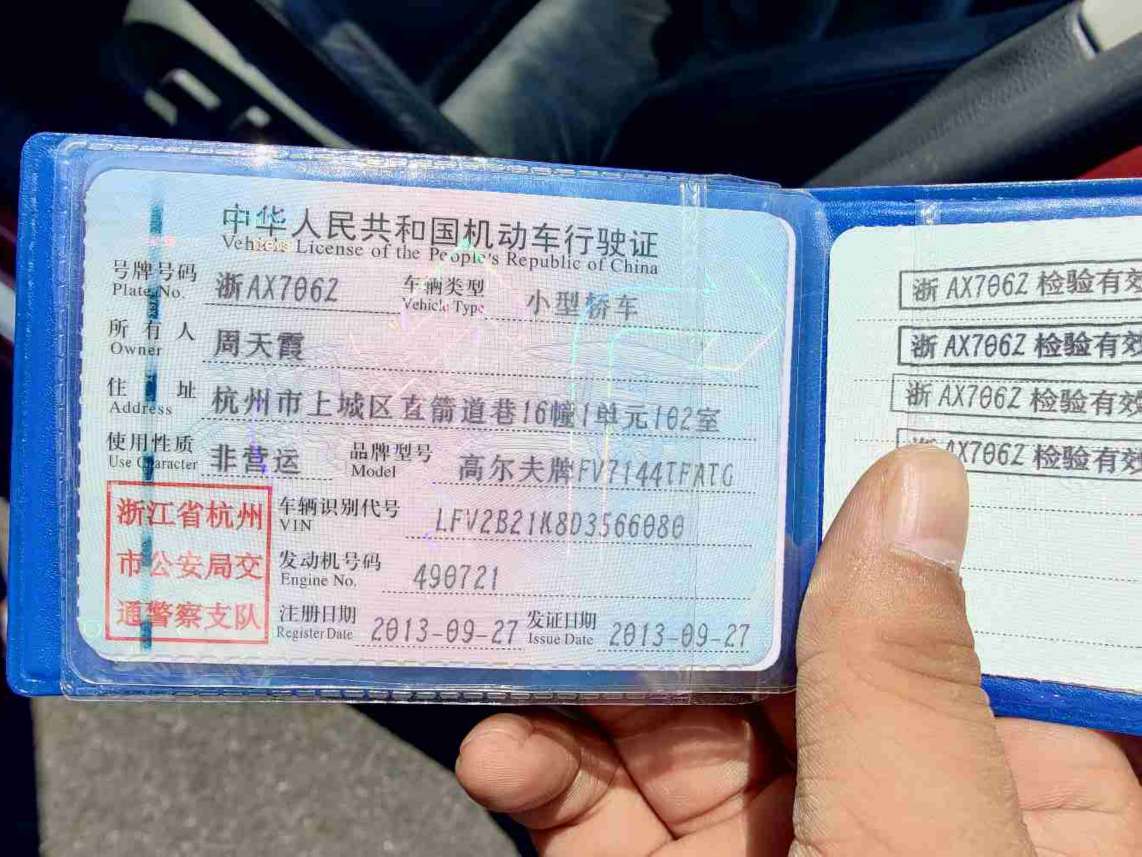 中华人民共和国机动车行驶证
Vehicle License of the People's Republic of China
号牌号码 浙AX706Z 车辆类型 小型轿车
Plate No. Vehicle Type
所有人 周天霞
Owner
住址 杭州市上城区直箭道巷16幢1单元102室
Address
使用性质 非营运 品牌型号 高尔夫牌FV7144TFATG
Use Character Model
浙江省杭州
市公安局交
通警察支队
车辆识别代号 LFV2B21K8D3566080
VIN
发动机号码 490721
Engine No.
注册日期 2013-09-27 发证日期 2013-09-27
Register Date Issue Date
浙AX706Z检验有效
浙AX706Z检验有效
浙AX706Z检验有效
AX706Z检验有效